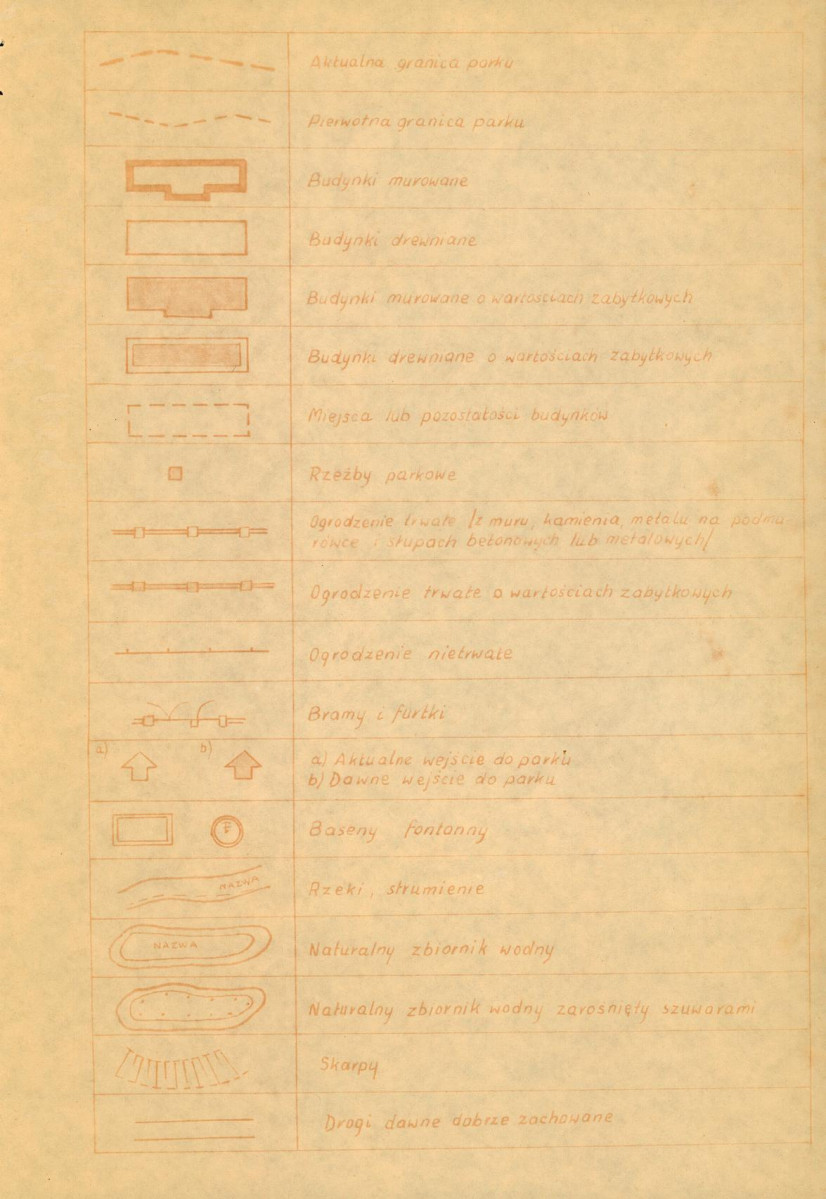 Aktualna granica parku
Pierwotna granica parku
Budynki murowane
Budynki drewniane
Budynki murowane o wartościach zabytkowych
Budynki drewniane o wartościach zabytkowych
Miejsca lub pozostałości budynków
Rzeźby parkowe
Ogrodzenie trwałe /z muru, kamienia, metalu na podmu
rówce i słupach betonowych lub metalowych/
Ogrodzenie trwałe o wartościach zabytkowych
Ogrodzenie nietrwałe
Bramy i furtki
a) b)
a) Aktualne wejście do parku
b) Dawne wejście do parku
F
Baseny fontanny
NAZWA
Rzeki, strumienie
NAZWA
Naturalny zbiornik wodny
Naturalny zbiornik wodny zarośnięty szuwarami
Skarpy
Drogi dawne dobrze zachowane